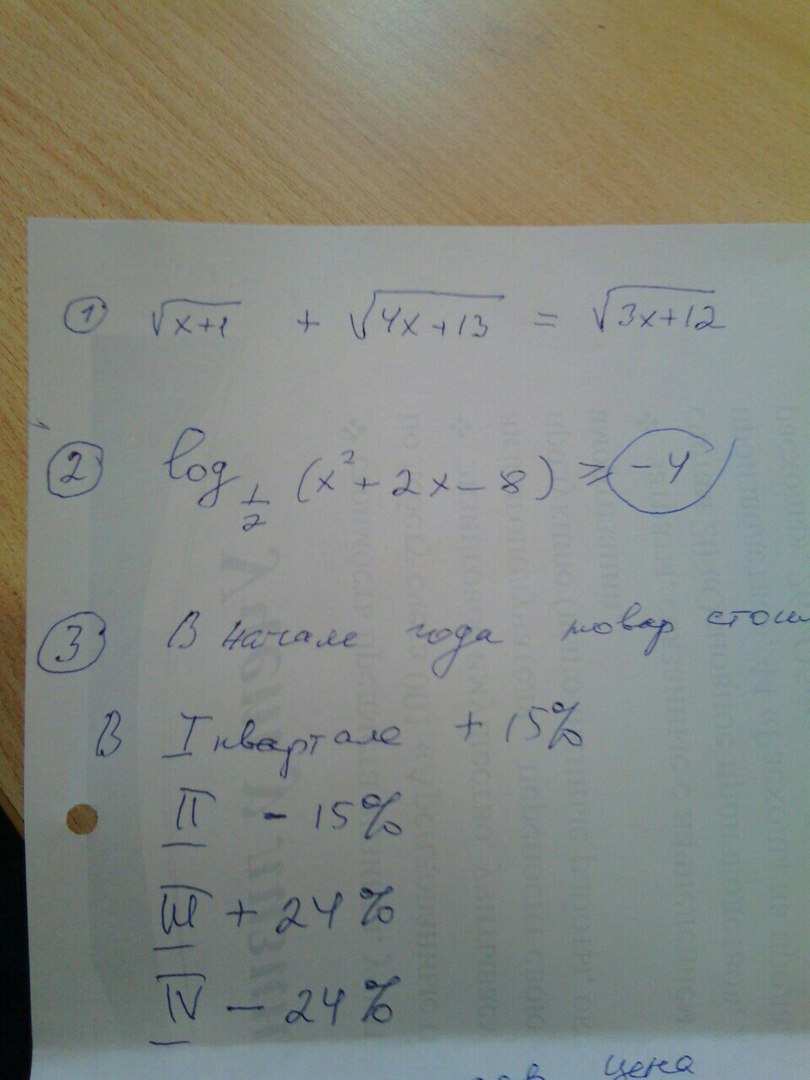 ① √x+1 + √4x+13 = √3x+12
② log 1/2 (x² + 2x - 8) ≥ -4
③ В начале года товар
В I квартале + 15%
II - 15%
III + 24%
IV - 24%
цена